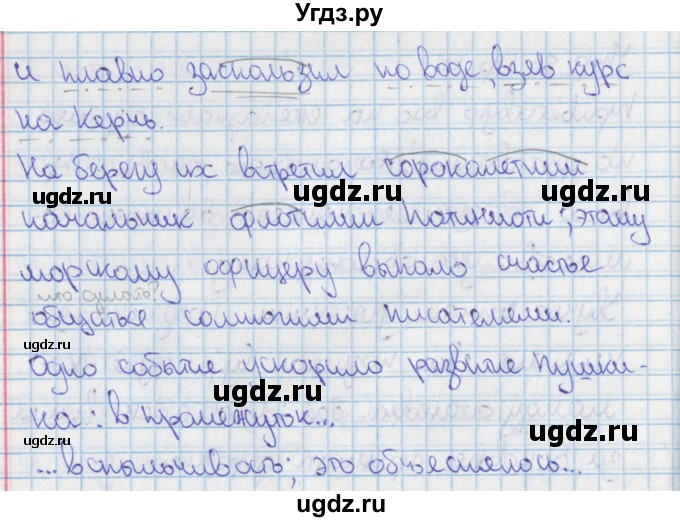 Угдз.ру
и плавно заскользил по воде, взяв курс
на Керчь.
На берегу их встретил сорокалетний
ugdz.ru ugdz.ru
начальник флотилии Потиниоти; этому
ugdz.ru
морскому офицеру выпало счастье
что делать?
общаться со многими писателями.
ugdz.ru ugdz.ru
Одно событие ускорило развитие Пушки-
на: в промежуток...
ugdz.ru ugdz.ru
...вспыльчивость; это объяснялось...
ugdz.ru